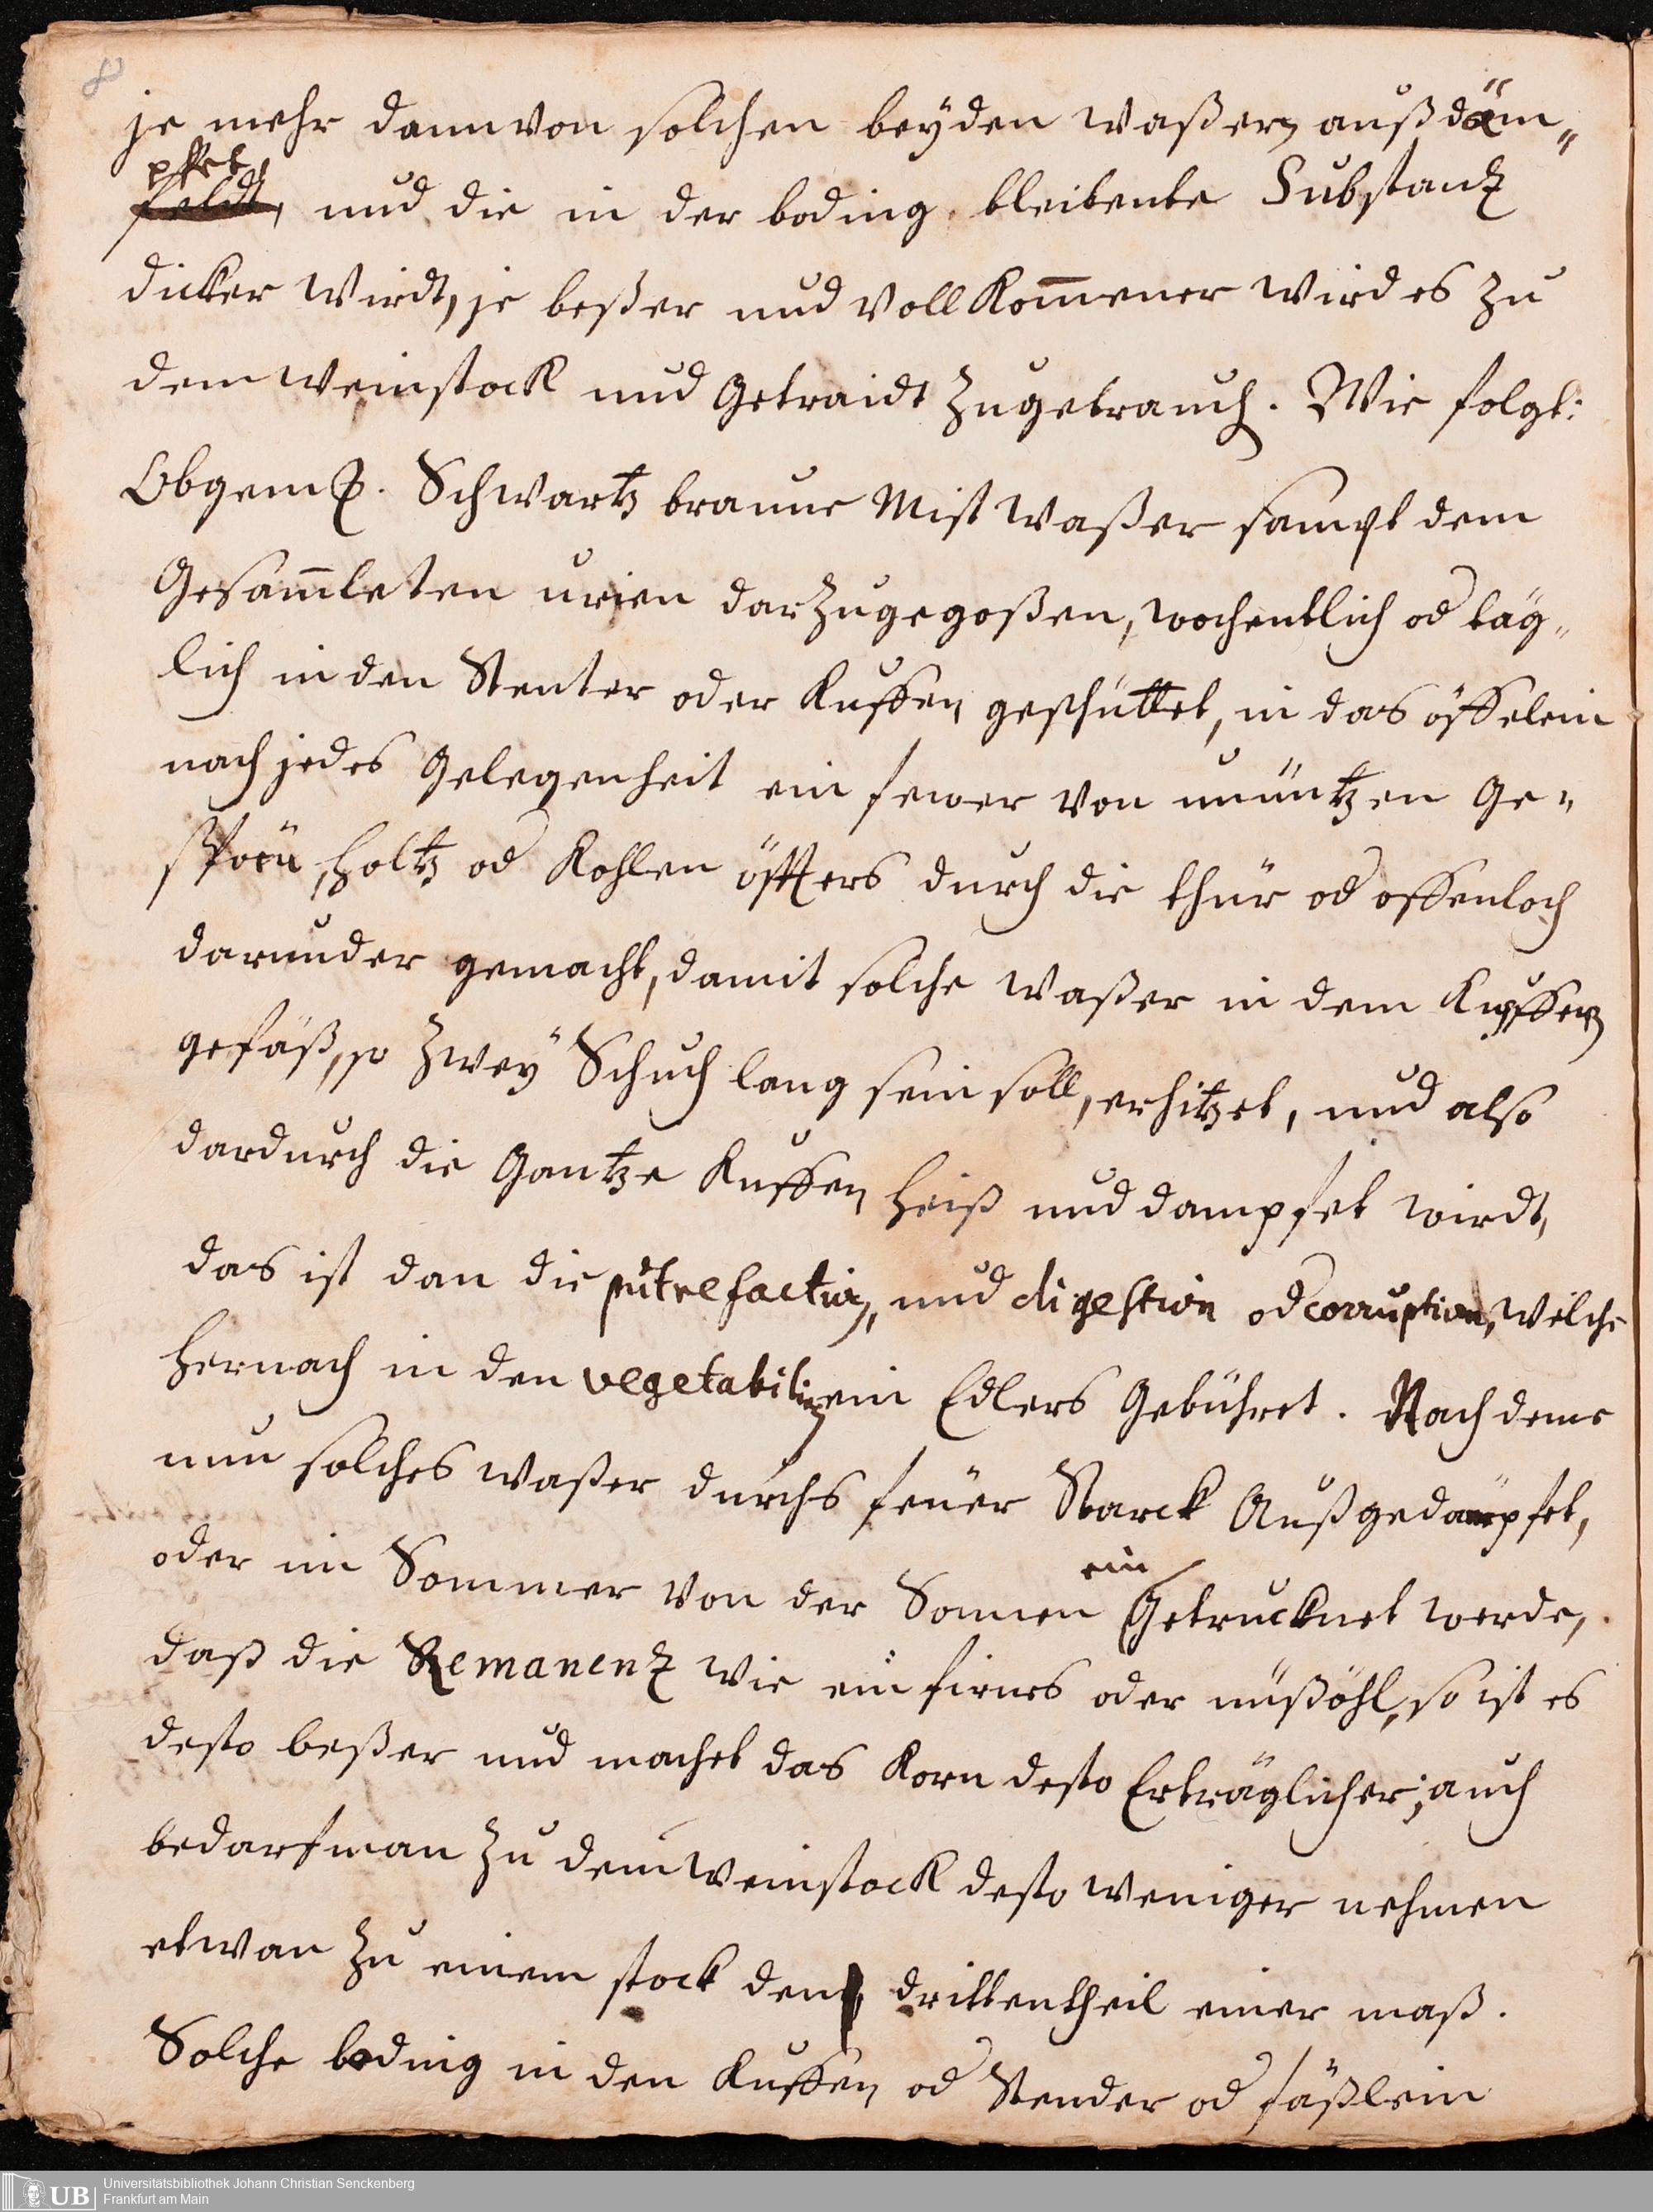 8
je mehr dann von solchen beyden Waßern außdäm„
pffet
feldt, und die in der boding bleibente Substantz
dicker Wirdt, je beßer und Vollkom̄ener Wird es zu
dem Weinstock und Getraidt zugebrauch. Wie folgt:
Obgemℓ. Schwartz braune Mist Waßer sampt dem
Gesam̄leten urien darzugegoßen, wochentlich od täg„
lich in den Stenter oder Kuffen geschüttet, in das öffelein
nach jedes Gelegenheit ein fewer von unnützen Ge„
Holtz od Kohlen öffters durch die thür od offenloch
darunder gemacht, damit solche Waßer in dem Kupffern
gefäß, so Zwey Schuch lang sein soll, erhitzet, und also
dardurch die Gantze Kuffen heiß und dampfet wirdt,
das ist dan die putrefaction, und digestion od corruption, Welche
hernach in den vegetabilien ein Edlers Gebühret. Nach deme
nun solches Waßer durchs feüer Starck Außgedampfet,
oder im Sommer Von der Sonnen ein Getrucknet werde,
daß die Remanenz Wie ein firnes oder nußöhl, so ist es
desto beßer und machet das Korn desto Erträglicher; auch
bedarf man zu dem Weinstock desto Weniger nehmen
etwan zu einem stock den drittentheil einer maß.
Solche boding in den Kuffen od Stender od fäßlein
UB Universitätsbibliothek Johann Christian Senckenberg
Frankfurt am Main